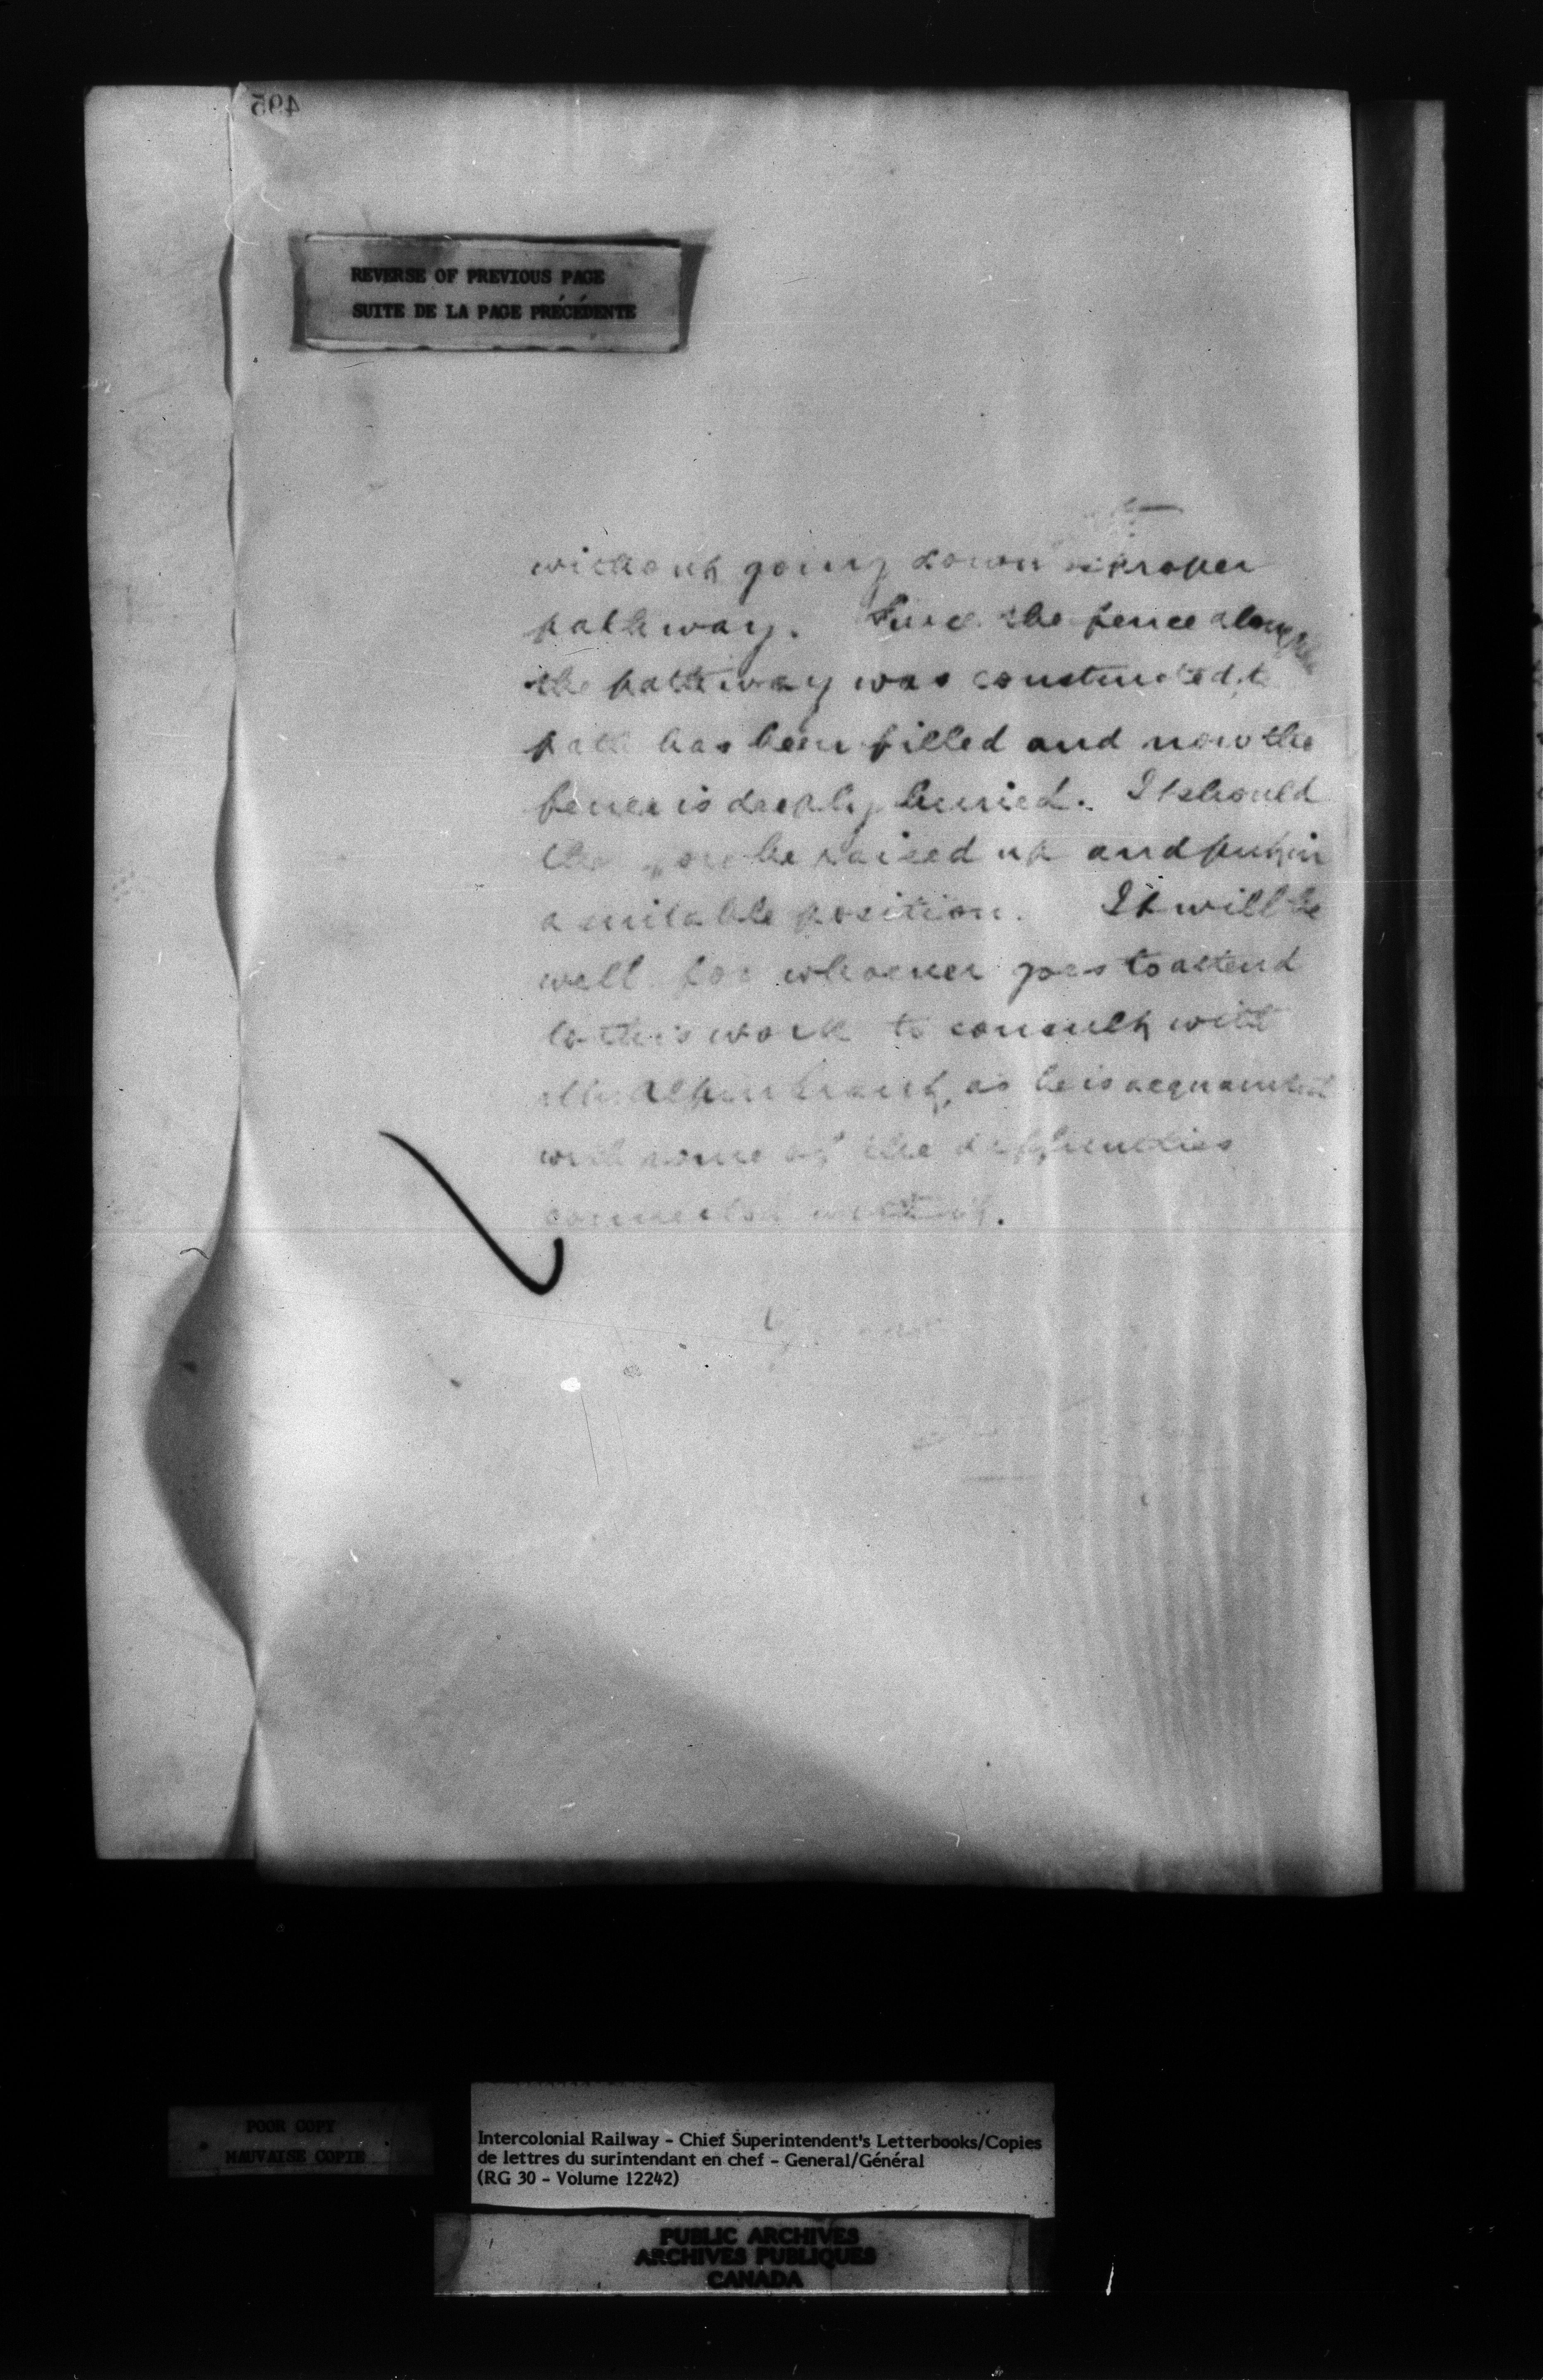 495
REVERSE OF PREVIOUS PAGE
SUITE DE LA PAGE PRÉCÉDENTE
without going down proper
pathway. Since the fence along
the pathway was constructed
path has been filled and now the
fence is deeply buried. It should
be raised up and put in
a suitable position. It will be
well for whoever goes to attend
to this work to consult with
Grant, as he is acquainted
with some of the difficulties
connected with it.
POOR COPY
MAUVAISE COPIE
Intercolonial Railway - Chief Superintendent's Letterbooks/Copies
de lettres du surintendant en chef - General/Général
(RG 30 - Volume 12242)
PUBLIC ARCHIVES
ARCHIVES PUBLIQUES
CANADA